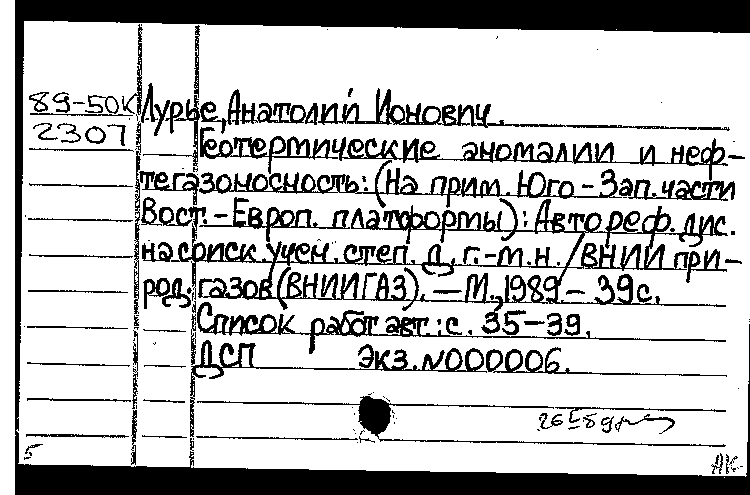 89-50К Лурье, Анатолий Ионович.
2307 Геотермические аномалии и неф-
тегазоносность: (На прим. Юго-Зап. части
Вост.-Европ. платформы): Автореф. дис.
на соиск. учен. степ. д. г.-м. н. / ВНИИ при-
род. газов (ВНИИГАЗ). — М., 1989 - 39с.
Список работ авт.: с. 35-39.
ДСП Экз. N000006.
5 АК